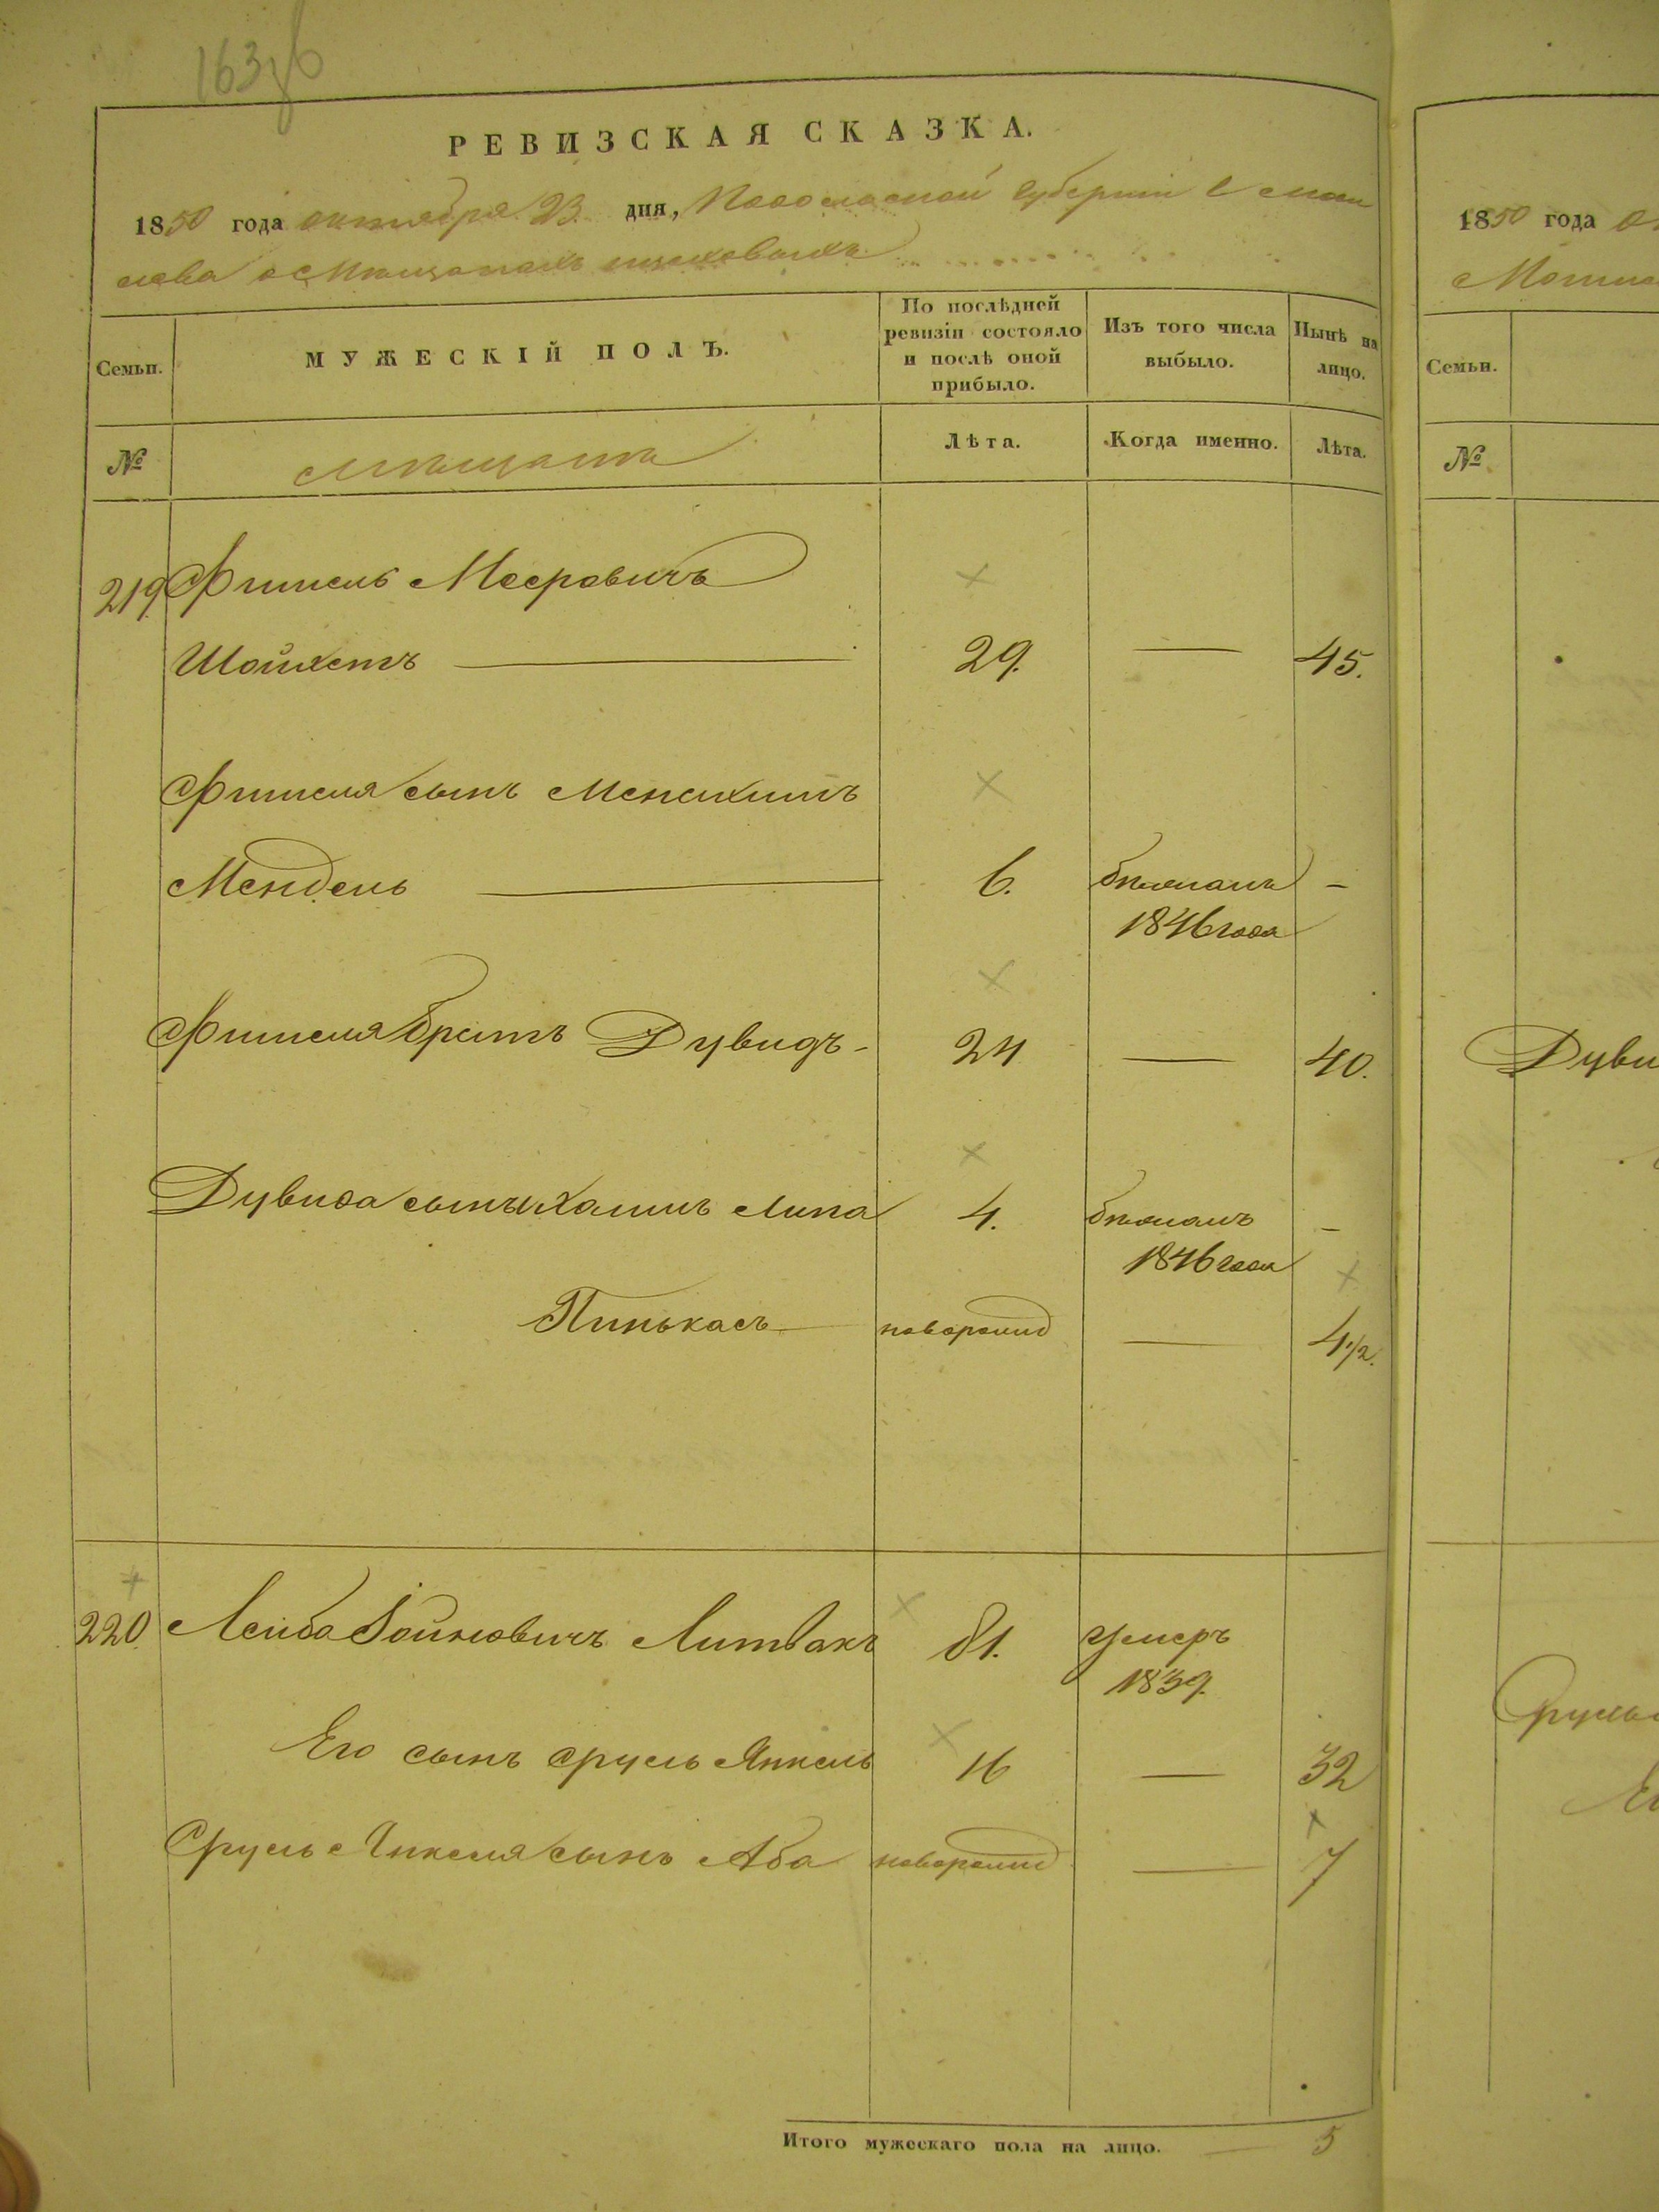 163
РЕВИЗСКАЯ СКАЗКА.
1850 года октября 23. дня, Подольской губернии Моги
лева о Мещанахъ
Семьи.
МУЖЕСКІЙ ПОЛЪ.
По послѣдней ревизіи состояло и послѣ оной прибыло.
Изъ того числа выбыло.
Нынѣ на лицо.
№
Мещане
Лѣта.
Когда именно.
Лѣта.
219 Фишель Мееровичъ
Шойхетъ 29. — 45.
Фишеля сынъ Менахимъ
Мендель 6. бѣжалъ —
1846 года
Фишеля братъ Дувидъ 24 — 40.
Дувида сыны Хаимъ Липа 4. бѣжалъ —
1846 года
Пинькасъ новорожд — 4 1/2.
220. Лейба Іойновичъ Литвакъ 81. умеръ
1839.
Его сынъ Сруль Янкель 16 — 32
Сруль Янкеля сынъ Аба новорожд — 7
Итого мужескаго пола на лицо. — 5
1850 года
Семьи.
№
Дуви